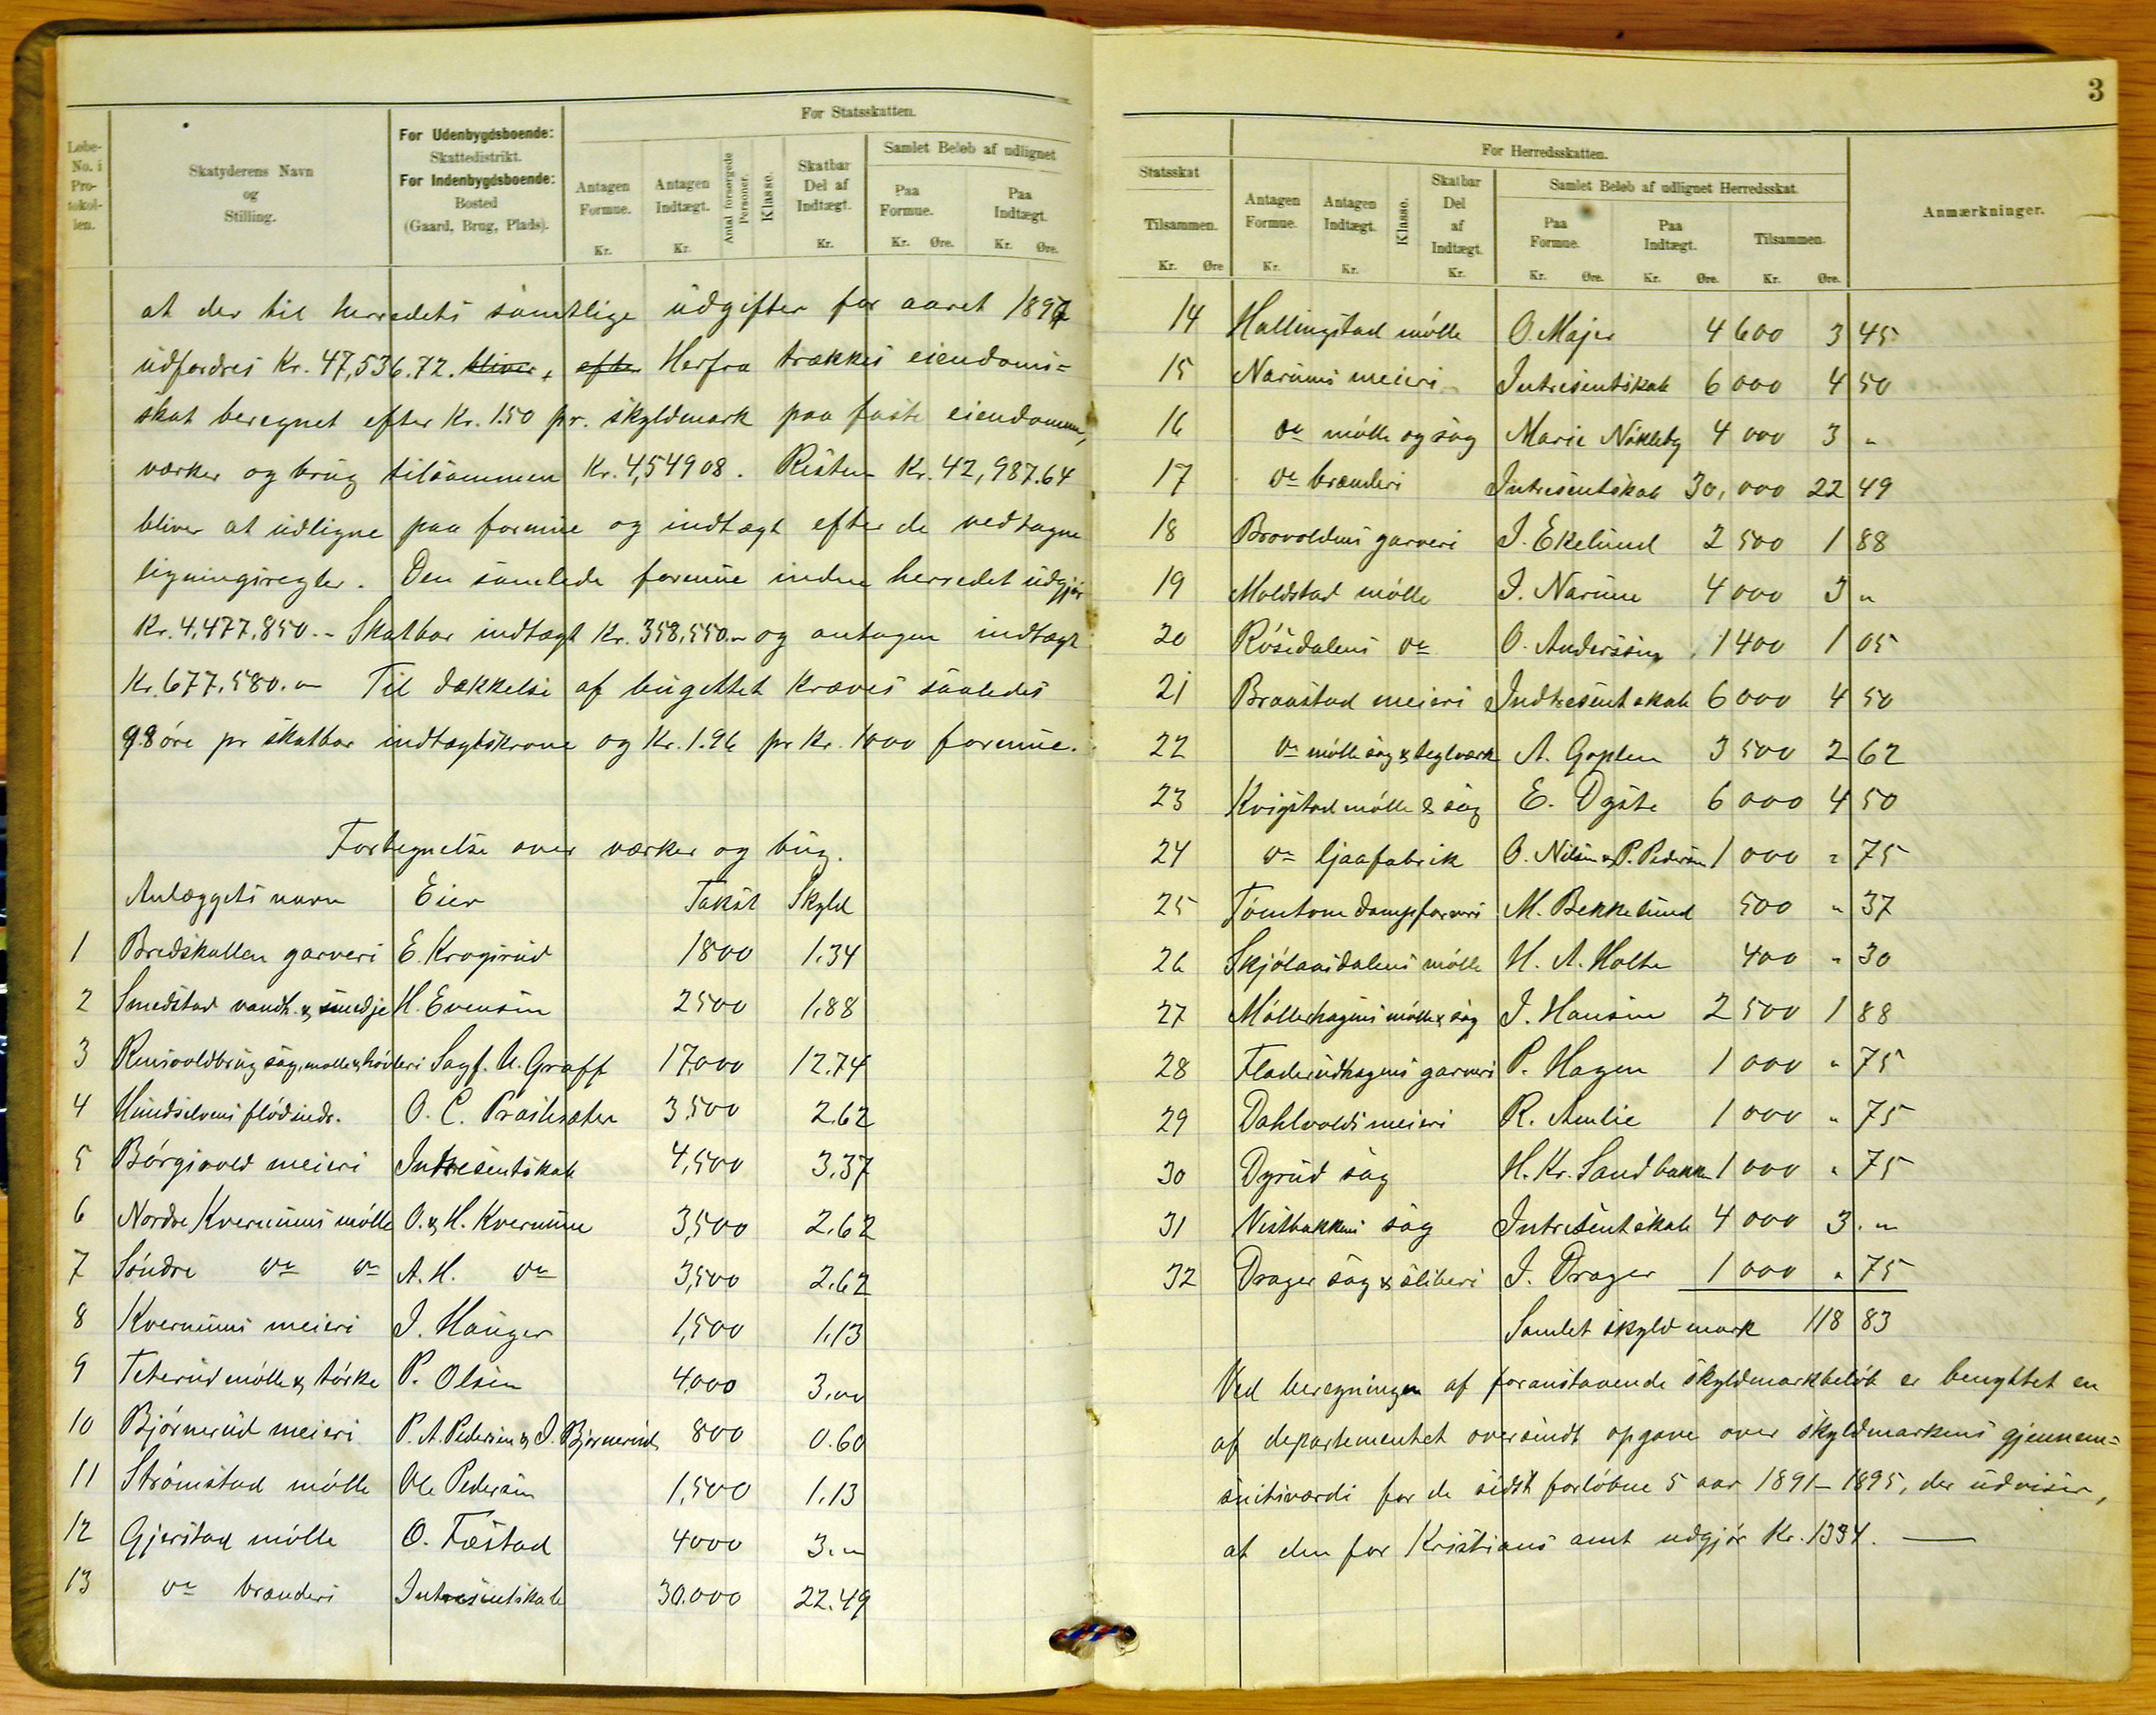 Løbe-No. i Protokollen.
Skatyderens Navn og Stilling.
For Udenbygdsboende: Skattedistrikt. For Indenbygdsboende: Bosted (Gaard, Brug, Plads).
For Statsskatten.
Antagen Formue. Kr.
Antagen Indtægt. Kr.
Antal forsørgede Personer.
Klasse.
Skatbar Del af Indtægt. Kr.
Samlet Beløb af udlignet
Paa Formue. Kr. Øre.
Paa Indtægt. Kr. Øre.
at der til herredets samtlige udgifter for aaret 1897
udfordres Kr. 47,536.72. bliver, efter Herfra trækkes eiendoms=
skat beregnet efter Kr. 1.50 pr. skyldmark paa faste eiendomme,
værker og brug tilsammen Kr. 4,549 08. Resten Kr. 42,987.64
bliver at udligne paa formue og indtægt efter de vedtagne
ligningsregler. Den samlede formue inden herredet udgjør
Kr. 4.477.850.- Skatbar indtægt Kr. 358,550.- og antagen indtægt
Kr. 677.580.- Til dækkelse af bugettet kræves saaledes
9.8 øre pr skatbar indtægtskrone og Kr. 1.96 pr Kr. 1000 formue.
Fortegnelse over værker og brug.
Anlæggets navn Eier Takst Skyld
1 Bredskallen garveri E. Krogsrud 1800 1.34
2 Smedstad vandh. & smedje H. Evensen 2500 1.88
3 Rensvoldbrug sag, mølle & høvleri Sagf. U. Graff 17,000 12.74
4 Hundselvens flødninds. O. C. Præstesæter 3.500 2.62
5 Børgsvold meieri Intresentskab 4,500 3.37
6 Nordre Kvernums mølle O. & H. Kvernum 3,500 2.62
7 Søndre do do A. H. do 3,500 2.62
8 Kvernums meieri J. Hauger 1,500 1.13
9 Teterud mølle & tørke P. Olsen 4000 3.00
10 Bjørnerud meieri P. A. Pedersen & O. Bjørnerud 800 0.60
11 Strømstad mølle Ole Pedersen 1,500 1.13
12 Gjerstad mølle O. Fæstad 4000 3.„
13 do brænderi Intresentskab 30.000 22.49
3
Statsskat Tilsammen. Kr. Øre
For Herredsskatten.
Antagen Formue. Kr.
Antagen Indtægt. Kr.
Klasse.
Skatbar Del af Indtægt. Kr.
Samlet Beløb af udlignet Herredsskat.
Paa Formue. Kr. Øre.
Paa Indtægt. Kr. Øre.
Tilsammen. Kr. Øre.
Anmærkninger.
14 Hallingstad mølle O. Majer 4 600 3 45
15 Narums meieri Intresentskab 6 000 4 50
16 do mølle og sag Marie Nøkleby 4 000 3 „
17 do brænderi Intresentskab 30,000 22 49
18 Brovoldens garveri J. Ekelund 2 500 1 88
19 Moldstad mølle J. Narum 4 000 3 „
20 Røsedalens do O. Anderssen 1 400 1 05
21 Braastad meieri Indtresentskab 6 000 4 50
22 do mølle sag & teglværk A. Goplen 3 500 2 62
23 Kvigstad mølle & sag E. Dyste 6 000 4 50
24 do ljaafabrik O. Nilsen & P. Pedersen 1 000 „ 75
25 Tømtom dampfarveri M. Bekkelund 500 „ 37
26 Skjølaasdalens mølle H. A. Holte 400 „ 30
27 Møllerhagens mølle & sag J. Hansen 2 500 1 88
28 Fladerudhagens garveri P. Hagen 1 000 „ 75
29 Dahlvolds meieri R. Amlie 1 000 „ 75
30 Dyrud sag H. Kr. Sandbakken 1 000 „ 75
31 Nestbakkens sag Intresentskab 4 000 3.„
32 Drager sag & sliberi J. Drager 1 000 „ 75
Samlet skyldmark 118 83
Ved beregningen af foranstaaende skyldmarkbeløb er benyttet en
af departementet oversendt opgave over skyldmarkens gjennem=
snitsværdi for de sidst forløbne 5 aar 1891-1895, der udviser,
at den for Kristians amt udgjør Kr. 1334.